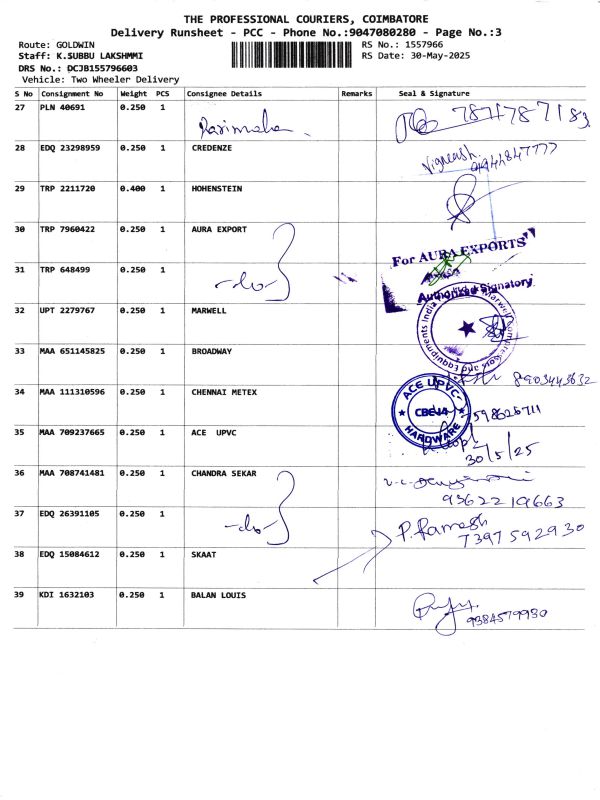 THE PROFESSIONAL COURIERS, COIMBATORE
Delivery Runsheet - PCC - Phone No.:9047080280 - Page No.:3
Route: GOLDWIN RS No.: 1557966
Staff: K.SUBBU LAKSHMMI RS Date: 30-May-2025
DRS No.: DCJB155796603
Vehicle: Two Wheeler Delivery
S No Consignment No Weight PCS Consignee Details Remarks Seal & Signature
27 PLN 40691 0.250 1 7871787183
28 EDQ 23298959 0.250 1 CREDENZE
29 TRP 2211720 0.400 1 HOHENSTEIN
30 TRP 7960422 0.250 1 AURA EXPORT
For AURA EXPORTS
31 TRP 648499 0.250 1 -do-
Authorized Signatory
32 UPT 2279767 0.250 1 MARWELL
33 MAA 651145825 0.250 1 BROADWAY
8903443632
34 MAA 111310596 0.250 1 CHENNAI METEX
ACE UPVC
CBE-14
HARDWARE
35 MAA 709237665 0.250 1 ACE UPVC
30/5/25
36 MAA 708741481 0.250 1 CHANDRA SEKAR
9362219663
37 EDQ 26391105 0.250 1 -do- P. Ramesh
7397592930
38 EDQ 15084612 0.250 1 SKAAT
39 KDI 1632103 0.250 1 BALAN LOUIS
9384579930